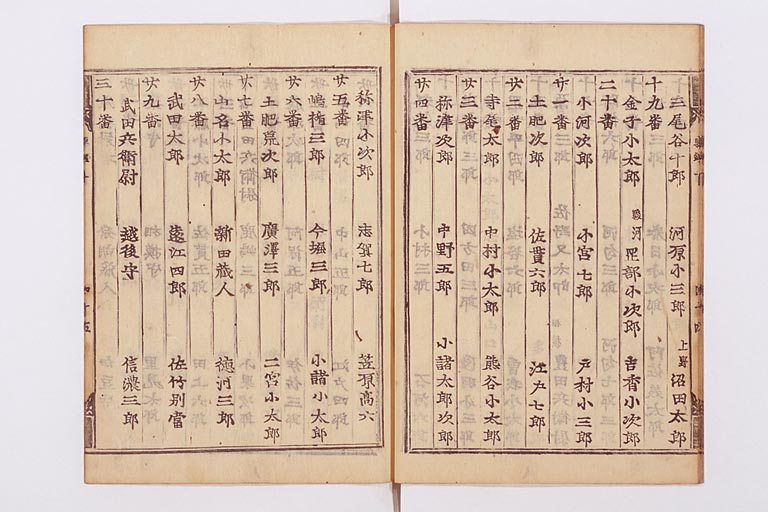 三尾谷十郎 河原小三郎 上野 沼田太郎
十九番
金子小太郎 駿河 小次郎 吉香小次郎
二十番
小河次郎 小宮七郎 戸村小三郎
廿一番
土肥次郎 佐貫六郎 江戸七郎
廿二番
寺尾太郎 中村小太郎 熊谷小太郎
廿三番
祢津次郎 中野五郎 小諸太郎次郎
廿四番
祢津小次郎 志賀七郎 笠原高六
廿五番
嶋楯三郎 今堀三郎 小諸小太郎
廿六番
土肥荒次郎 廣澤三郎 二宮小太郎
廿七番
山名小太郎 新田蔵人 徳河三郎
廿八番
武田太郎 遠江四郎 佐竹別當
廿九番
武田兵衛尉 越後守 信濃三郎
三十番